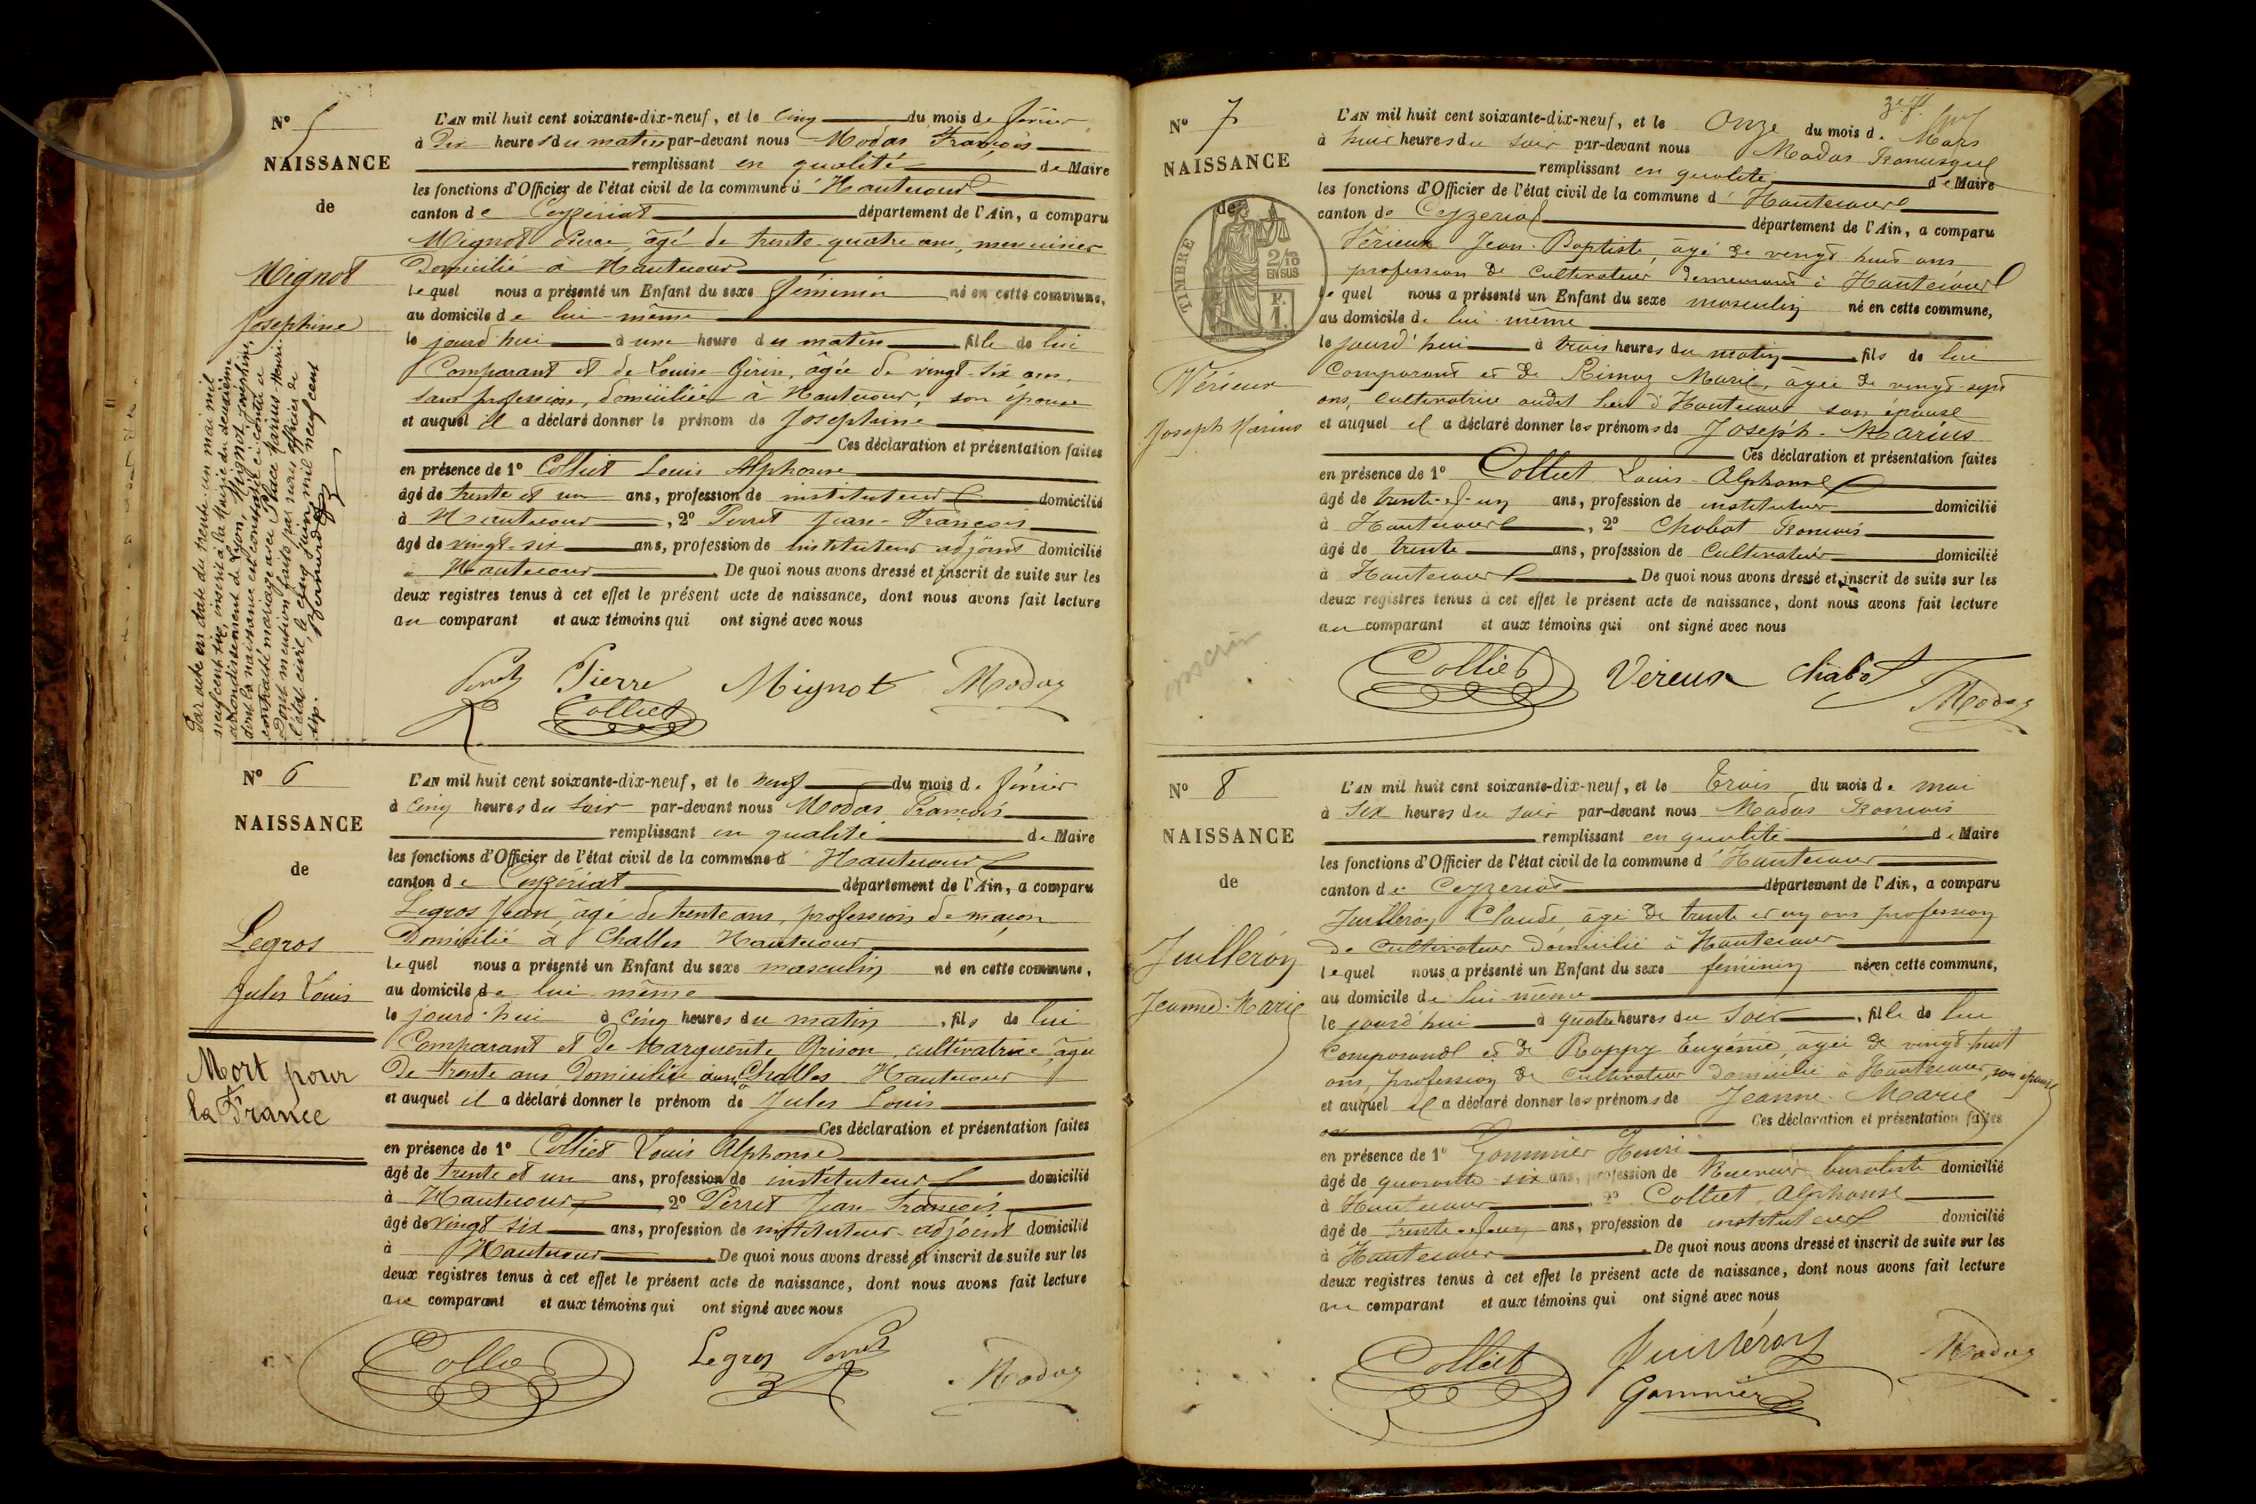 N° 5
NAISSANCE
de
Mignot
Josephine
Par acte en date du trente-un mai mil
neuf cent six, inscrit à la Mairie du deuxième
arrondissement de Lyon, Mignot Josephine,
dont la naissance est constatée ci-contre a
contracté mariage avec Place Marius Henri.
Dont mention faite par nous officier de
l'état civil, le cinq juin mil neuf cent
six.
L'AN mil huit cent soixante-dix-neuf, et le cinq du mois de février
à Dix heures du matin par-devant nous Modas François
remplissant en qualité de Maire
les fonctions d'Officier de l'état civil de la commune d'Hautecour
canton de Ceyzériat département de l'Ain, a comparu
Mignot Pierre, âgé de trente-quatre ans, menuisier
Domicilié à Hautecour
lequel nous a présenté un Enfant du sexe féminin né en cette commune,
au domicile de lui-même
le jourd'hui à une heure du matin fille de lui
Comparant et de Louise Gérin, âgée de vingt-six ans,
sans profession, domiciliée à Hautecour, son épouse
et auquel il a déclaré donner le prénom de Josephine
Ces déclaration et présentation faites
en présence de 1° Colliet Louis Alphonse
âgé de trente et un ans, profession de instituteur domicilié
à Hautecour, 2° Perret Jean-François
âgé de vingt-six ans, profession de instituteur adjoint domicilié
à Hautecour. De quoi nous avons dressé et inscrit de suite sur les
deux registres tenus à cet effet le présent acte de naissance, dont nous avons fait lecture
au comparant et aux témoins qui ont signé avec nous
Perret Pierre Mignot Modas
Colliet
N° 6
NAISSANCE
de
Legros
Jules Louis
Mort pour
la France
L'AN mil huit cent soixante-dix-neuf, et le neuf du mois de février
à cinq heures du soir par-devant nous Modas François
remplissant en qualité de Maire
les fonctions d'Officier de l'état civil de la commune d'Hautecour
canton de Ceyzériat département de l'Ain, a comparu
Legros Jean âgé de trente ans, profession de maçon
Domicilié à Challes Hautecour
lequel nous a présenté un Enfant du sexe masculin né en cette commune,
au domicile de lui même
le jourd'hui à cinq heures du matin, fils de lui
Comparant et de Marguerite Brison, cultivatrice âgée
De trente ans Domiciliée Challes Hautecour
et auquel il a déclaré donner le prénom de Jules Louis
Ces déclaration et présentation faites
en présence de 1° Colliet Louis Alphonse
âgé de trente et un ans, profession de instituteur domicilié
à Hautecour, 2° Perret Jean-François
âgé de vingt six ans, profession de instituteur-adjoint domicilié
à Hautecour. De quoi nous avons dressé et inscrit de suite sur les
deux registres tenus à cet effet le présent acte de naissance, dont nous avons fait lecture
au comparant et aux témoins qui ont signé avec nous
Colliet Legros Perret Modas
N° 7
NAISSANCE
de
TIMBRE
2/10
EN SUS
Vérieux
Joseph Marius
inscrit
L'AN mil huit cent soixante-dix-neuf, et le Onze du mois de Mars
à huit heures du soir par-devant nous Modas
remplissant en qualité de Maire
les fonctions d'Officier de l'état civil de la commune d'Hautecour
canton de Ceyzeriat département de l'Ain, a comparu
Vérieux Jean-Baptiste, âgé de vingt huit ans
profession de cultivateur demeurant à Hautecour
lequel nous a présenté un Enfant du sexe masculin né en cette commune,
au domicile de lui même
le jourd'hui à trois heures du matin fils de lui
Comparant et de Rimoz Marie, âgée de vingt-sept
ans, cultivatrice audit lieu d'Hautecour son épouse
et auquel il a déclaré donner les prénoms de Joseph-Marius
Ces déclaration et présentation faites
en présence de 1° Colliet Louis-Alphonse
âgé de trente-et-un ans, profession de instituteur domicilié
à Hautecour, 2° Chabot François
âgé de trente ans, profession de cultivateur domicilié
à Hautecour. De quoi nous avons dressé et inscrit de suite sur les
deux registres tenus à cet effet le présent acte de naissance, dont nous avons fait lecture
au comparant et aux témoins qui ont signé avec nous
Colliet Vereux Chabot
Modas
N° 8
NAISSANCE
de
Juilléron
Jeanne-Marie
L'AN mil huit cent soixante-dix-neuf, et le Trois du mois de mai
à six heures du soir par-devant nous Modas François
remplissant en qualité de Maire
les fonctions d'Officier de l'état civil de la commune d'Hautecour
canton de Ceyzeriat département de l'Ain, a comparu
Juilléron Claude, âgé de trente et un ans profession
de cultivateur domicilié à Hautecour
lequel nous a présenté un Enfant du sexe féminin né en cette commune,
au domicile de lui même
le jourd'hui à quatre heures du soir, fille de lui
comparant et de Rappy Eugénie, âgée de vingt-huit
ans, profession de cultivateur domicilié à Hautecour, son épouse
et auquel il a déclaré donner les prénoms de Jeanne-Marie
Ces déclaration et présentation faites
en présence de 1° Gommier Henri
âgé de quarante-six ans, profession de Receveur buraliste domicilié
à Hautecour 2° Colliet Alphonse
âgé de trente-et-un ans, profession de instituteur domicilié
à Hautecour. De quoi nous avons dressé et inscrit de suite sur les
deux registres tenus à cet effet le présent acte de naissance, dont nous avons fait lecture
au comparant et aux témoins qui ont signé avec nous
Colliet Juilléron Modas
Gommier